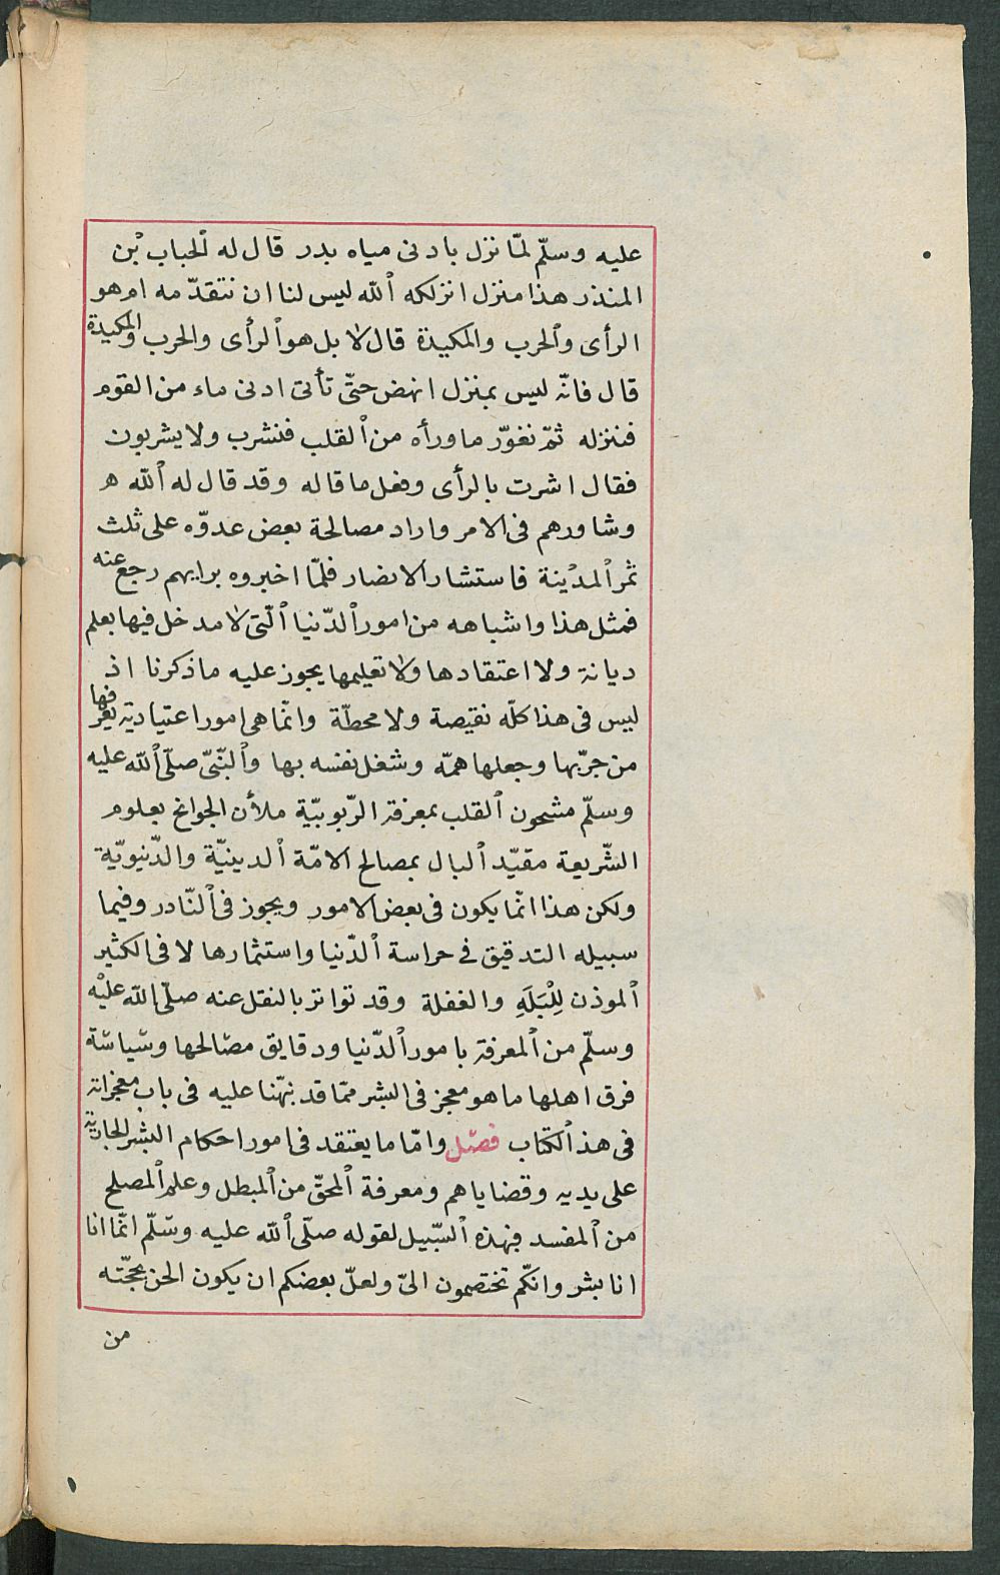 عليه وسلّم لمّا نزل بادنى مياه بدر قال له ٱلحباب بْن
المنذر هذا منزل انزلكه ٱللّه ليس لنا ان نتقدّمه ام هو
الرأى وٱلحرب والمكيدة قال لا بل هو ٱلرأى والحرب والمكيدة
قال فانّه ليس بمنزل انهض حتّى تأتى ادنى ماء من القوم
فننزله ثمّ نغوّر ما ورأه من ٱلقلب فنشرب ولا يشربون
فقال اشرت بالرأى وفعل ما قاله وقد قال له ٱللّه ه
وشاورهم فى الامر واراد مصالحة بعض عدوّه على ثلث
ثمر ٱلمدْينة فاستشار الانصار فلمّا اخبروه برايهم رجع عنه
فمثل هذا واشباهه من امور ٱلدّنيا ٱلّتى لا مدخل فيها بعلم
ديانة ولا اعتقادها ولا تعليمها يجوز عليه ما ذكرنا اذ
ليس فى هذا كلّه نقيصة ولا محطّة وانّما هى امور اعتياديّة يعرفها
من جرّبها وجعلها همّه وشغل نفسه بها وٱلنّبّى صلّى ٱللّه عليه
وسلّم مشحون ٱلقلب بمعرفة الرّبوبيّة ملأن الجوانح بعلوم
الشّريعة مقيّد ٱلبال بمصالح الامّة ٱلدينيّة والدّنيويّة
ولكن هذا انّما يكون فى بعض الامور ويجوز فى ٱلنّادر وفيما
سبيله التدقيق فى حراسة ٱلدّنيا واستثمارها لا فى الكثير
ٱلموذن لِلْبَلَهِ والغفلة وقد تواتر بالنقل عنه صلّى اللّه عليْه
وسلّم من ٱلمعرفة بامور ٱلدّنيا ودقايق مصالحها وسياسة
فرق اهلها ما هو معجز فى البشر ممّا قد نبّهنا عليه فى باب معجزاته
فى هذ ٱلكتاب فصل وامّا ما يعتقد فى امور احكام البشر الجارية
على يديه وقضاياهم ومعرفة ٱلمحقّ من ٱلمبطل وعلم ٱلمصلح
من ٱلمفسد فبهذه ٱلسّبيل لقوله صلّى ٱللّه عليه وسّلّم انّما انا
انا بشر وانّكم تختصمون الىّ ولعلّ بعضكم ان يكون الحن بحجّته
من